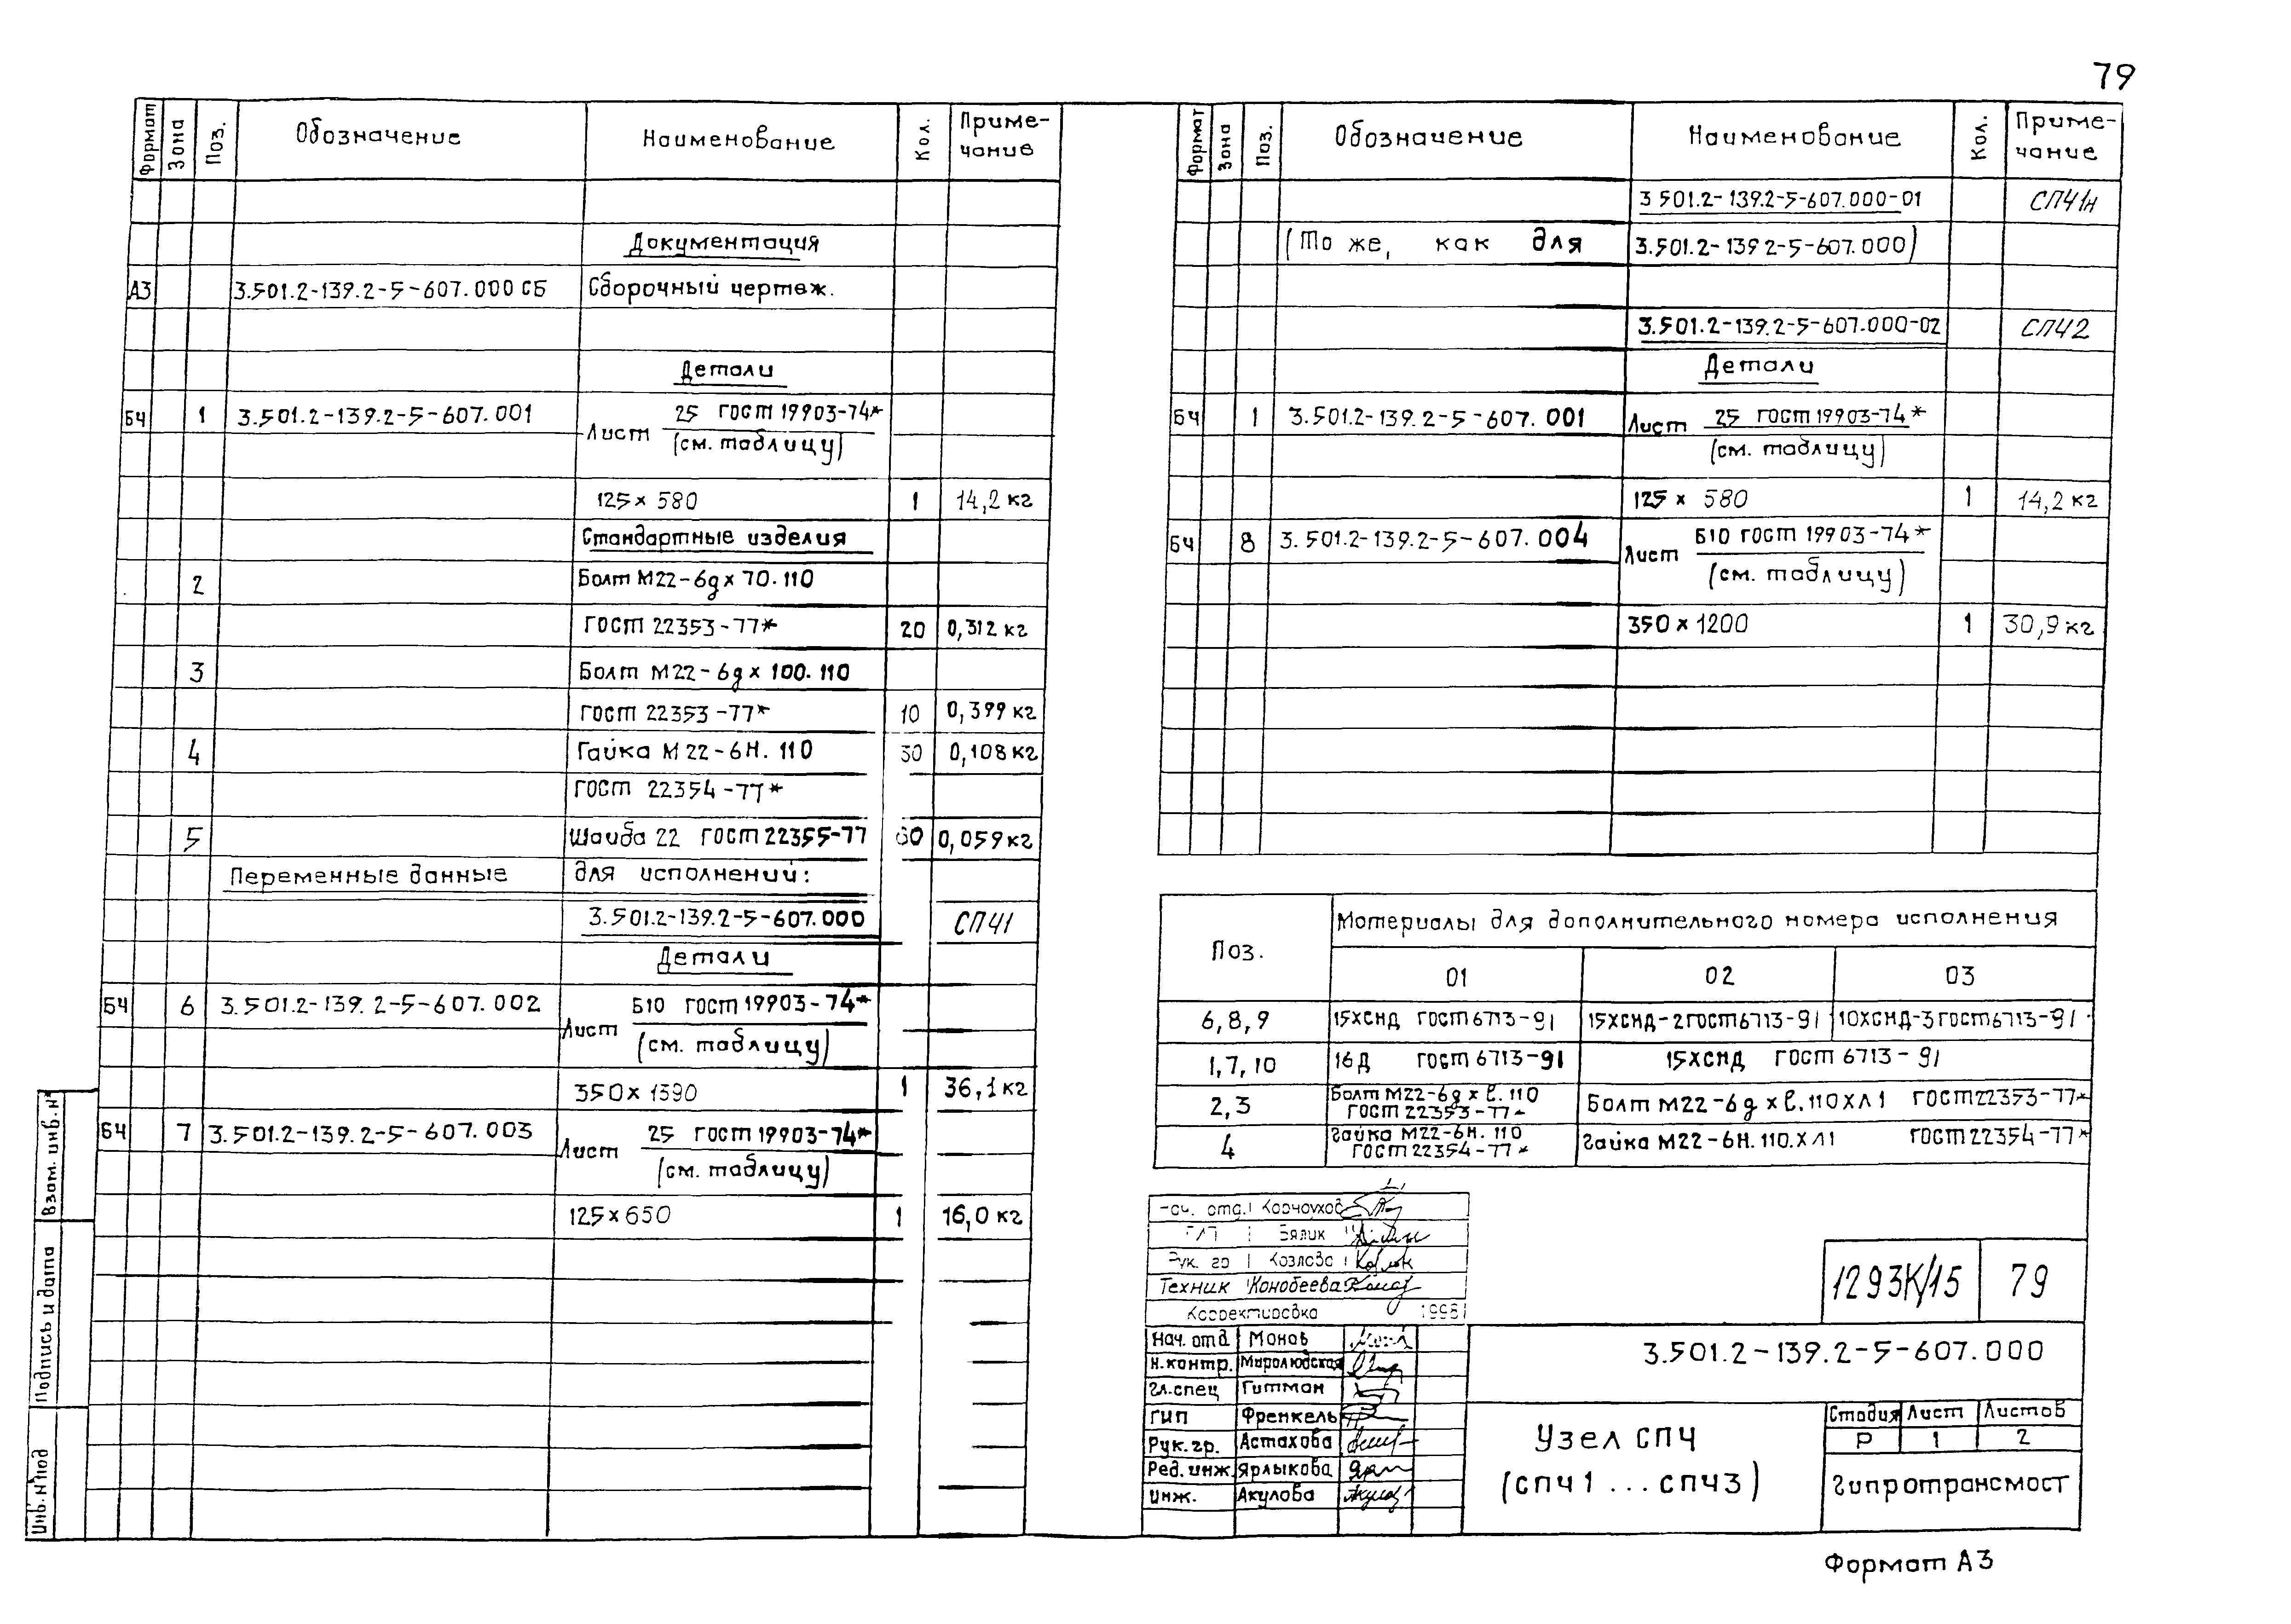 79
Формат Зона Поз. Обозначение Наименование Кол. Приме-
чание
Документация
А3 3.501.2-139.2-5-607.000 СБ Сборочный чертеж.
Детали
БЧ 1 3.501.2-139.2-5-607.001 Лист 25 ГОСТ 19903-74*
(см. таблицу)
125 x 580 1 14,2 кг
Стандартные изделия
2 Болт М22-6g x 70.110
ГОСТ 22353-77* 20 0,312 кг
3 Болт М22-6g x 100.110
ГОСТ 22353-77* 10 0,399 кг
4 Гайка М22-6Н.110 30 0,108 кг
ГОСТ 22354-77*
5 Шайба 22 ГОСТ 22355-77 60 0,059 кг
Переменные данные для исполнений:
3.501.2-139.2-5-607.000 СПЧ1
Детали
БЧ 6 3.501.2-139.2-5-607.002 Лист Б10 ГОСТ 19903-74*
(см. таблицу)
350 x 1390 1 36,1 кг
БЧ 7 3.501.2-139.2-5-607.003 Лист 25 ГОСТ 19903-74*
(см. таблицу)
125 x 650 1 16,0 кг
Формат Зона Поз. Обозначение Наименование Кол. Приме-
чание
3.501.2-139.2-5-607.000-01 СПЧ1н
(То же, как для 3.501.2-139.2-5-607.000)
3.501.2-139.2-5-607.000-02 СПЧ2
Детали
БЧ 1 3.501.2-139.2-5-607.001 Лист 25 ГОСТ 19903-74*
(см. таблицу)
125 x 580 1 14,2 кг
БЧ 8 3.501.2-139.2-5-607.004 Лист Б10 ГОСТ 19903-74*
(см. таблицу)
350 x 1200 1 30,9 кг
Поз. Материалы для дополнительного номера исполнения
01 02 03
6,8,9 15ХСНД ГОСТ 6713-91 15ХСНД-2 ГОСТ 6713-91 10ХСНД-3 ГОСТ 6713-91
1,7,10 16Д ГОСТ 6713-91 15ХСНД ГОСТ 6713-91
2,3 Болт М22-6g x l.110
ГОСТ 22353-77* Болт М22-6g x l.110ХЛ1 ГОСТ 22353-77*
4 Гайка М22-6Н.110
ГОСТ 22354-77* Гайка М22-6Н.110.ХЛ1 ГОСТ 22354-77*
Нач. отд. Корноухов
ГИП Бялик
Рук. гр Козлова
Техник Конобеева
Корректировка 1998
1293К/15 79
Нач. отд Монов
Н.контр. Миролюбская
Гл.спец Гитман
ГИП Френкель
Рук. гр. Астахова
Вед. инж Ярлыкова
Инж. Акулова
3.501.2-139.2-5-607.000
Узел СПЧ
(СПЧ1 ... СПЧ3)
Стадия Лист Листов
Р 1 2
Гипротрансмост
Взам. инв. №
Подпись и дата
Инв. № под
Формат А3